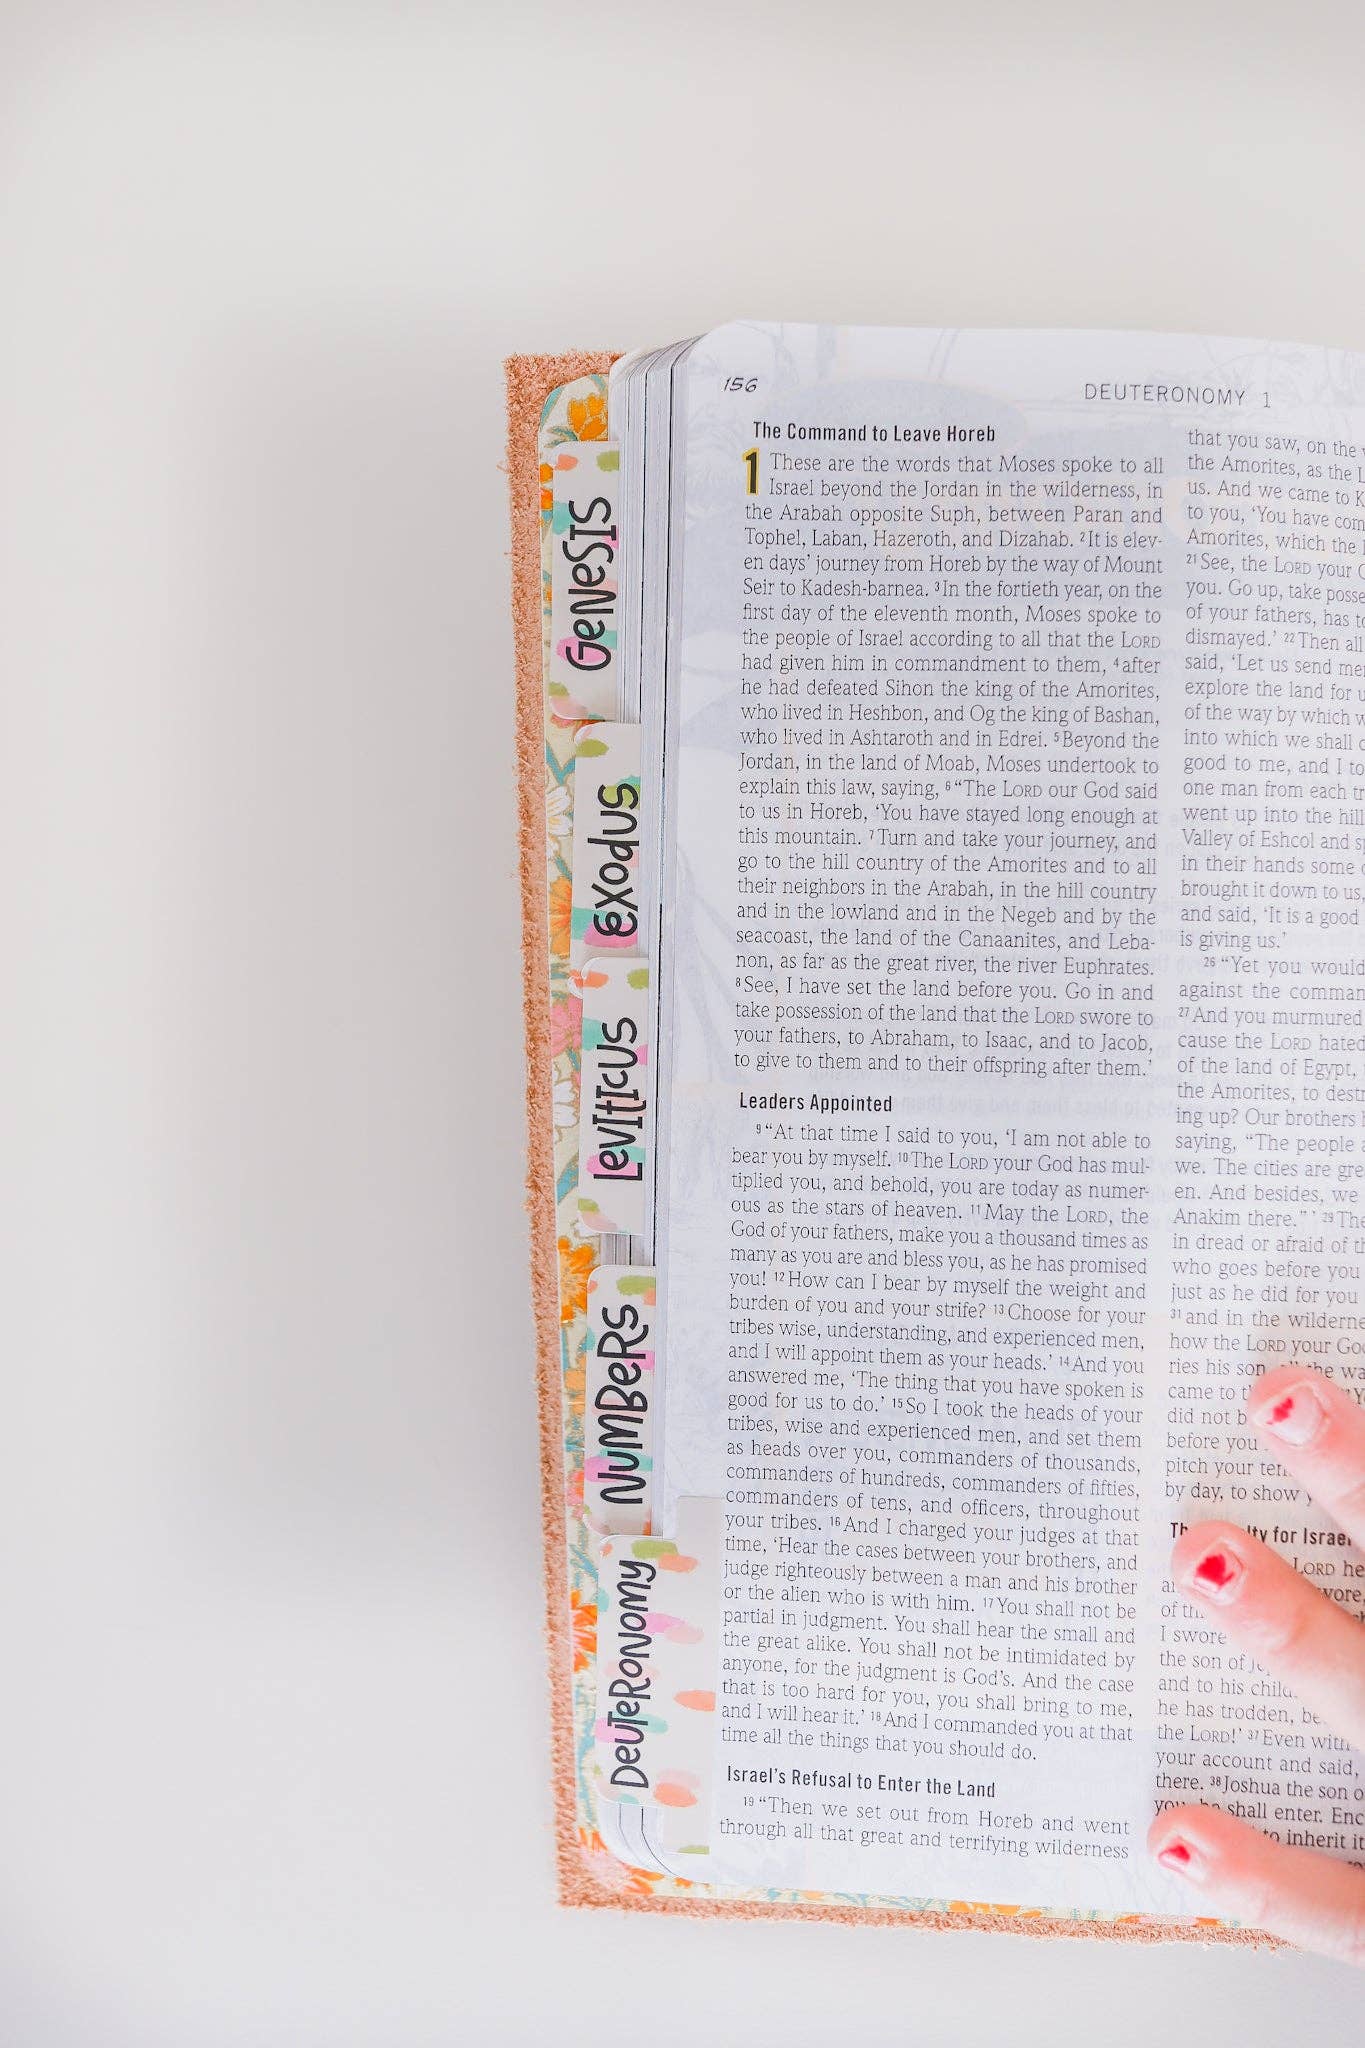 GENESIS
EXODUS
LEVITICUS
NUMBERS
DEUTERONOMY
156
DEUTERONOMY 1
The Command to Leave Horeb
1 These are the words that Moses spoke to all
Israel beyond the Jordan in the wilderness, in
the Arabah opposite Suph, between Paran and
Tophel, Laban, Hazeroth, and Dizahab. 2It is elev-
en days' journey from Horeb by the way of Mount
Seir to Kadesh-barnea. 3In the fortieth year, on the
first day of the eleventh month, Moses spoke to
the people of Israel according to all that the LORD
had given him in commandment to them, 4after
he had defeated Sihon the king of the Amorites,
who lived in Heshbon, and Og the king of Bashan,
who lived in Ashtaroth and in Edrei. 5Beyond the
Jordan, in the land of Moab, Moses undertook to
explain this law, saying, 6“The LORD our God said
to us in Horeb, ‘You have stayed long enough at
this mountain. 7Turn and take your journey, and
go to the hill country of the Amorites and to all
their neighbors in the Arabah, in the hill country
and in the lowland and in the Negeb and by the
seacoast, the land of the Canaanites, and Leba-
non, as far as the great river, the river Euphrates.
8See, I have set the land before you. Go in and
take possession of the land that the LORD swore to
your fathers, to Abraham, to Isaac, and to Jacob,
to give to them and to their offspring after them.’
Leaders Appointed
9“At that time I said to you, ‘I am not able to
bear you by myself. 10The LORD your God has mul-
tiplied you, and behold, you are today as numer-
ous as the stars of heaven. 11May the LORD, the
God of your fathers, make you a thousand times as
many as you are and bless you, as he has promised
you! 12How can I bear by myself the weight and
burden of you and your strife? 13Choose for your
tribes wise, understanding, and experienced men,
and I will appoint them as your heads.’ 14And you
answered me, ‘The thing that you have spoken is
good for us to do.’ 15So I took the heads of your
tribes, wise and experienced men, and set them
as heads over you, commanders of thousands,
commanders of hundreds, commanders of fifties,
commanders of tens, and officers, throughout
your tribes. 16And I charged your judges at that
time, ‘Hear the cases between your brothers, and
judge righteously between a man and his brother
or the alien who is with him. 17You shall not be
partial in judgment. You shall hear the small and
the great alike. You shall not be intimidated by
anyone, for the judgment is God's. And the case
that is too hard for you, you shall bring to me,
and I will hear it.’ 18And I commanded you at that
time all the things that you should do.
Israel's Refusal to Enter the Land
19“Then we set out from Horeb and went
through all that great and terrifying wilderness
that you saw, on the
the Amorites, as the
us. And we came to
to you, ‘You have
Amorites, which the
21See, the LORD your
you. Go up, take
of your fathers, has
dismayed.’ 22Then all
said, ‘Let us send
explore the land for
of the way by which
into which we shall
good to me, and I
one man from each
went up into the
Valley of Eshcol and
in their hands some
brought it down to us,
and said, ‘It is a good
is giving us.’
26“Yet you would
against the
27And you murmured
cause the LORD hated
of the land of Egypt,
the Amorites, to
ing up? Our brothers
saying, “The people
we. The cities are
en. And besides, we
Anakim there.”’ 29
in dread or afraid of
who goes before you
just as he did for you
31and in the
how the LORD your
ries his son, the
came to
did not
before you
pitch your
by day, to show
for Israel
LORD
of
I swore
the son of
and to his
he has trodden,
the LORD!’ 37Even
your account and said,
there. 38Joshua the son
shall enter.
to inherit it